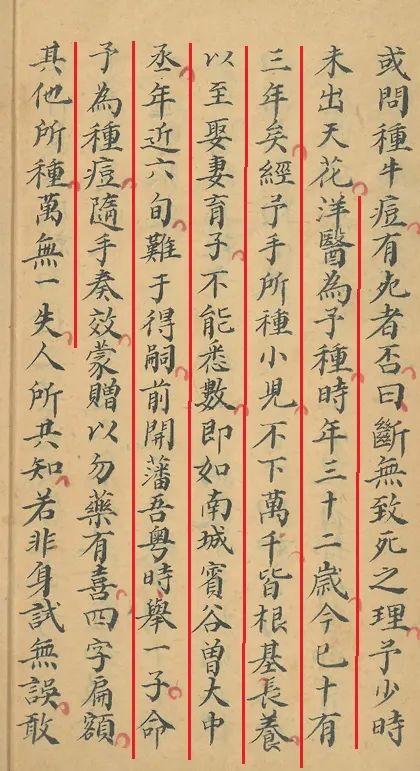 或問種牛痘有死者否曰斷無致死之理予少時
未出天花洋醫為予種時年三十二歲今已十有
三年矣經予手所種小兒不下萬千皆根基長養
以至娶妻育子不能悉數即如南城賓谷曾大中
丞年近六旬難于得嗣前開藩吾粵時舉一子命
予為種痘隨手奏效蒙贈以勿藥有喜四字扁額
其他所種萬無一失人所共知若非身試無誤敢